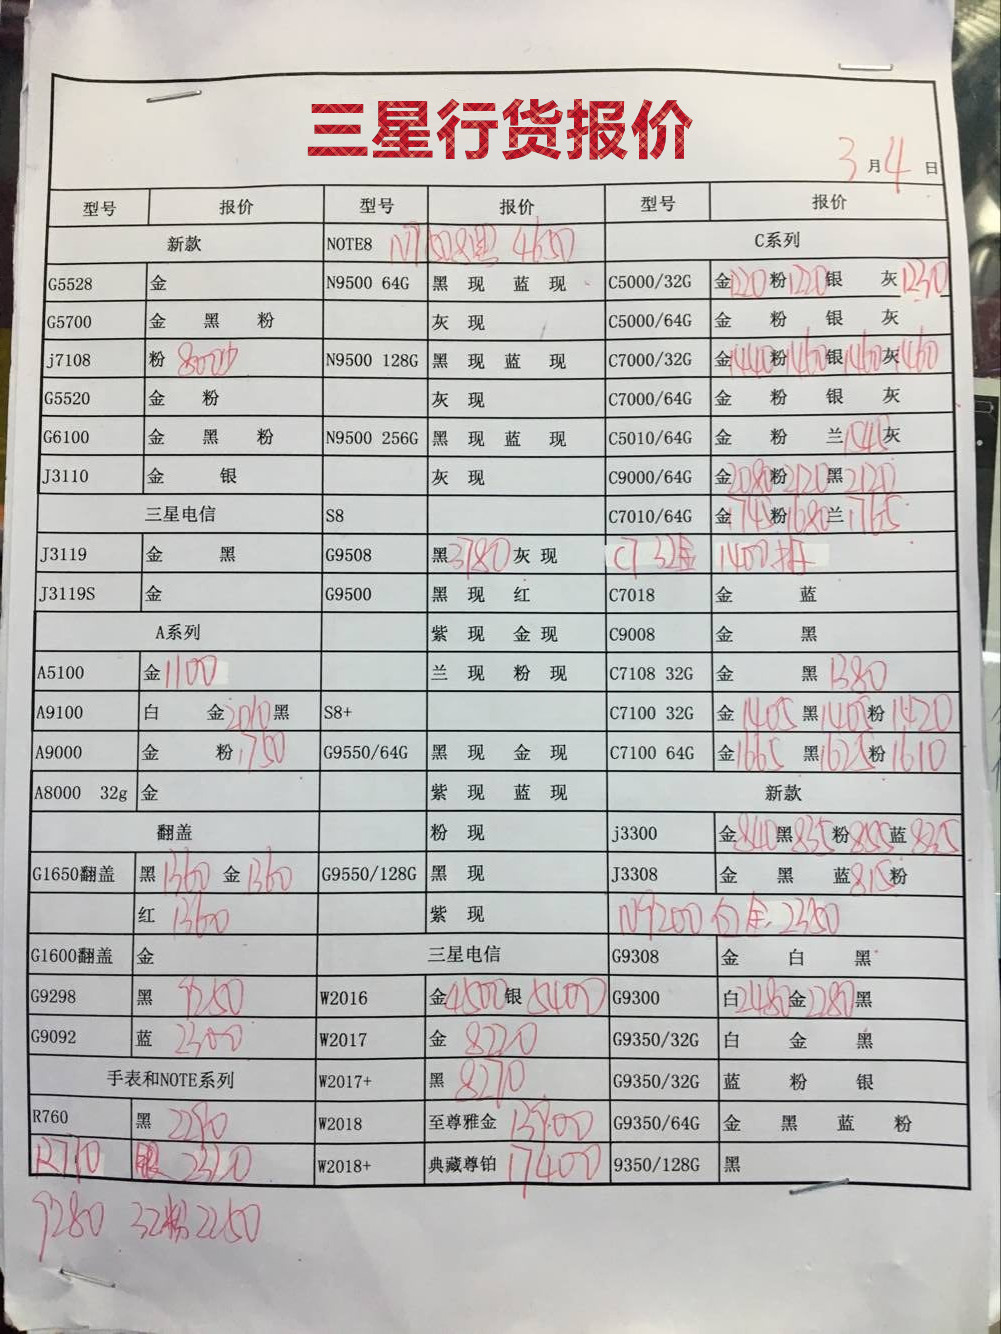 三星行货报价
3月4日
型号 报价 型号 报价 型号 报价
新款 NOTE8 4650 C系列
G5528 金 N9500 64G 黑 现 蓝 现 C5000/32G 金1220粉1220银 灰1230
G5700 金 黑 粉 灰 现 C5000/64G 金 粉 银 灰
j7108 粉 800 N9500 128G 黑 现 蓝 现 C7000/32G 金1440粉1460银1460灰1460
G5520 金 粉 灰 现 C7000/64G 金 粉 银 灰
G6100 金 黑 粉 N9500 256G 黑 现 蓝 现 C5010/64G 金 粉 兰1545灰
J3110 金 银 灰 现 C9000/64G 金2080粉2120黑2120
三星电信 S8 C7010/64G 金1745粉1680兰1765
J3119 金 黑 G9508 黑3780灰 现 C7 32金 1400
J3119S 金 G9500 黑 现 红 C7018 金 蓝
A系列 紫 现 金 现 C9008 金 黑
A5100 金1100 兰 现 粉 现 C7108 32G 金 黑1380
A9100 白 金2010黑 S8+ C7100 32G 金1405黑1405粉1420
A9000 金 粉1750 G9550/64G 黑 现 金 现 C7100 64G 金1665黑1625粉1610
A8000 32g 金 紫 现 蓝 现 新款
翻盖 粉 现 j3300 金840黑835粉855蓝835
G1650翻盖 黑1360金1360 G9550/128G 黑 现 J3308 金 黑 蓝815粉
红1360 紫 现 N9200 白金 2350
G1600翻盖 金 三星电信 G9308 金 白 黑
G9298 黑 4250 W2016 金4500银5400 G9300 白2480金2280黑
G9092 蓝 2300 W2017 金 8220 G9350/32G 白 金 黑
手表和NOTE系列 W2017+ 黑 8270 G9350/32G 蓝 粉 银
R760 黑 2290 W2018 至尊雅金 13900 G9350/64G 金 黑 蓝 粉
R770 银 2310 W2018+ 典藏尊铂 17400 9350/128G 黑
9280 32粉2250